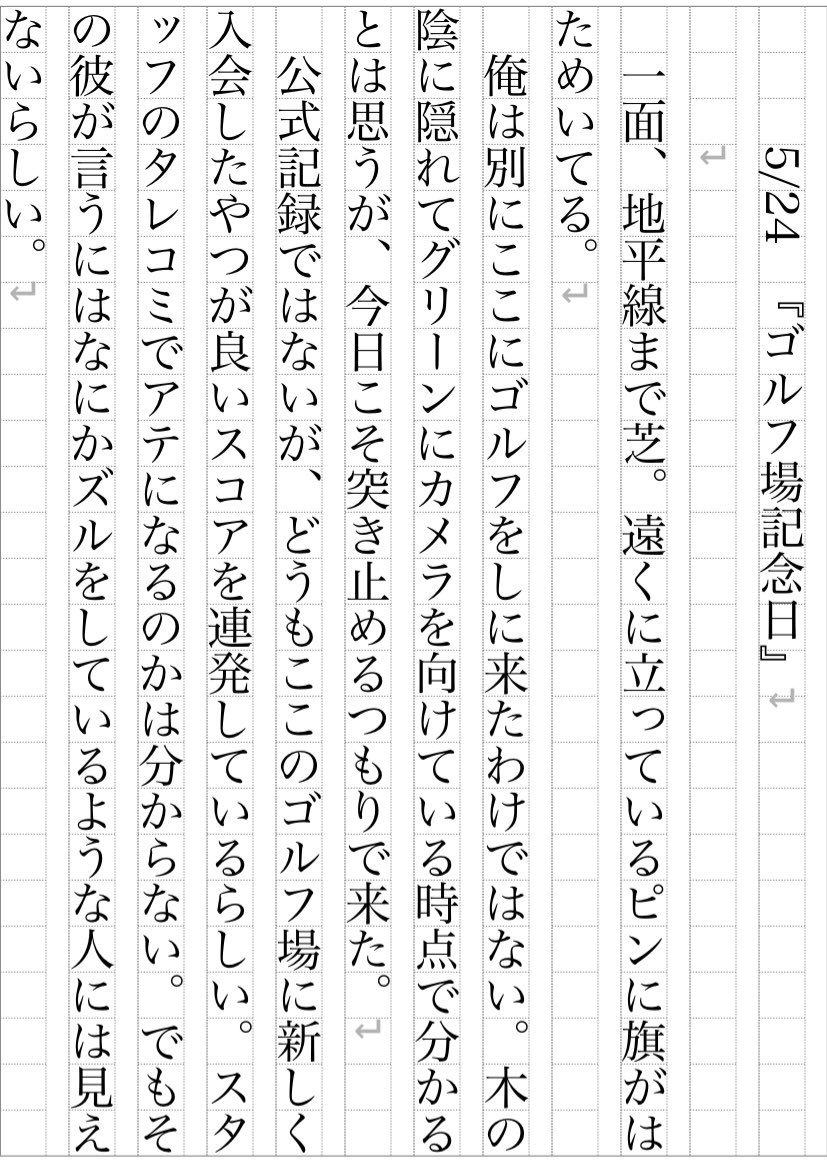 5/24　『ゴルフ場記念日』
　一面、地平線まで芝。遠くに立っているピンに旗がは
ためいてる。
　俺は別にここにゴルフをしに来たわけではない。木の
陰に隠れてグリーンにカメラを向けている時点で分かる
とは思うが、今日こそ突き止めるつもりで来た。
　公式記録ではないが、どうもここのゴルフ場に新しく
入会したやつが良いスコアを連発しているらしい。スタ
ッフのタレコミでアテになるのかは分からない。でもそ
の彼が言うにはなにかズルをしているような人には見え
ないらしい。